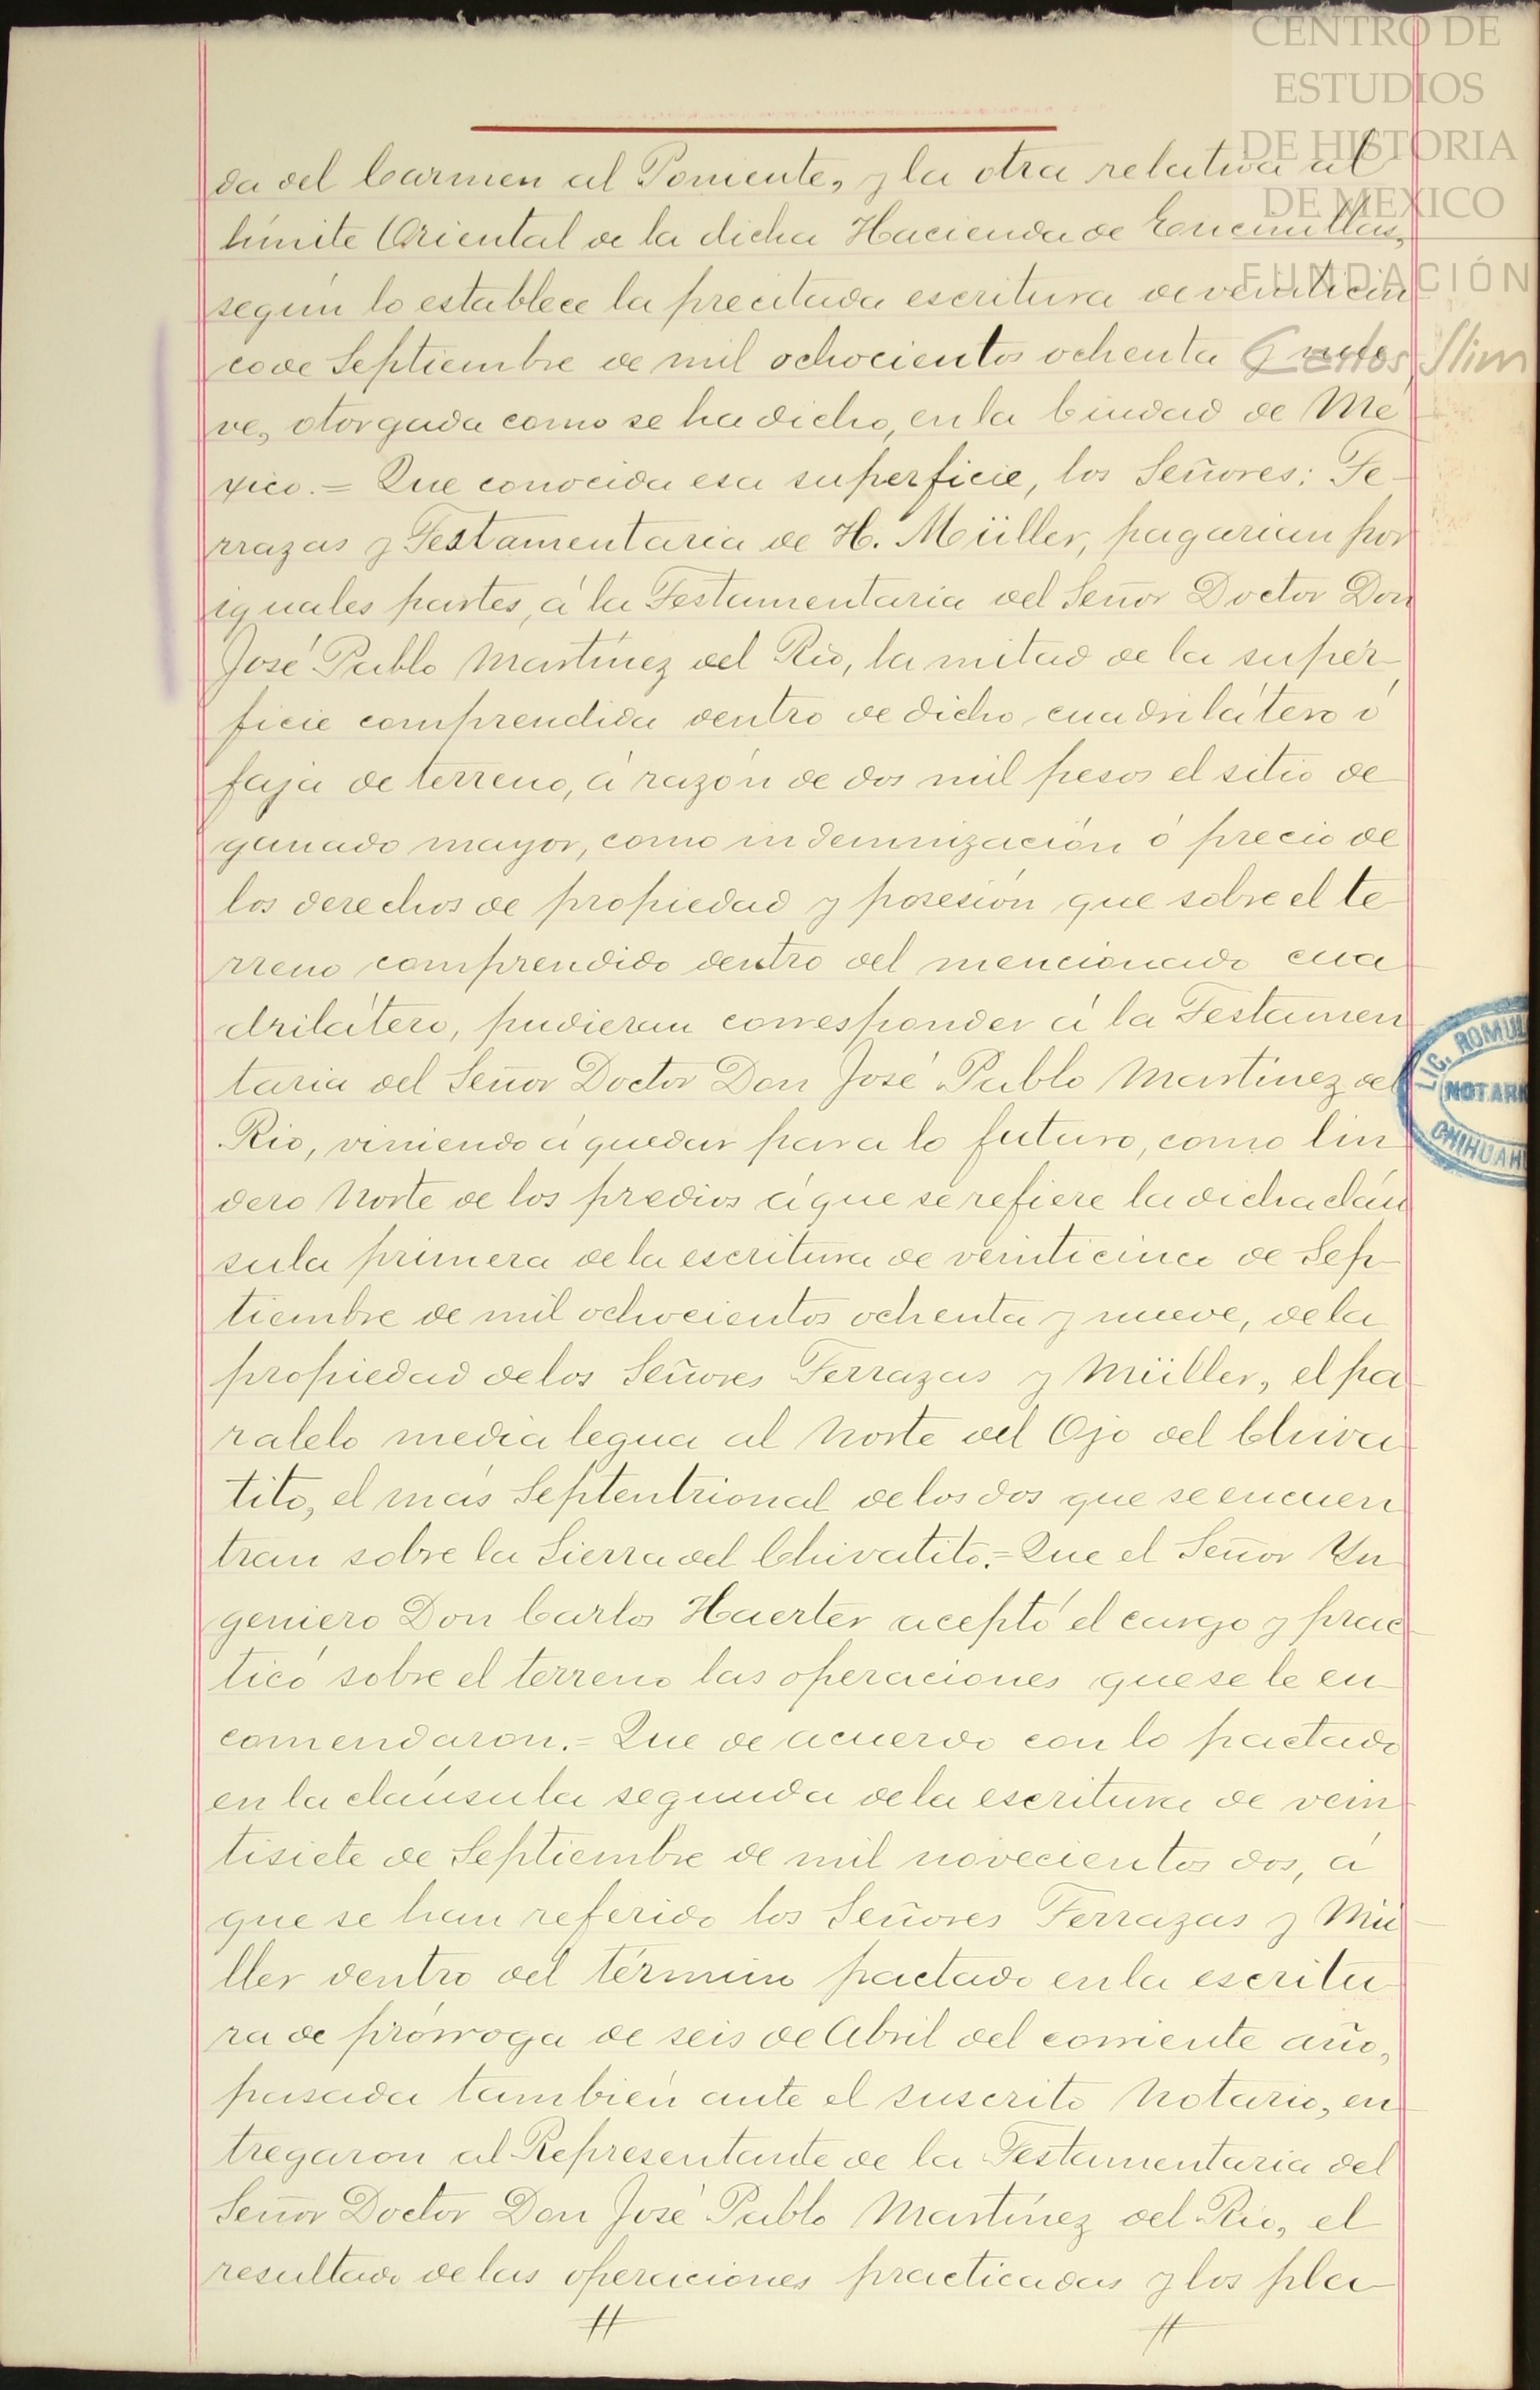 CENTRO DE
ESTUDIOS
DE HISTORIA
DE MEXICO
FUNDACIÓN
Carlos Slim
da del Carmen al Poniente, y la otra relativa al
límite Oriental de la dicha Hacienda de Encinillas,
según lo establece la precitada escritura de veinticin
co de Septiembre de mil ochocientos ochenta y nue
ve, otorgada como se ha dicho, en la Ciudad de Mé
xico.= Que conocida esa superficie, los Señores: Te-
rrazas y Testamentaria de H. Müller, pagarían por
iguales partes, á la Testamentaria del Señor Doctor Don
José Pablo Martínez del Río, la mitad de la super-
ficie comprendida dentro de dicho cuadrilátero ó
faja de terreno, á razón de dos mil pesos el sitio de
ganado mayor, como indemnización ó precio de
los derechos de propiedad y posesión que sobre el te
rreno comprendido dentro del mencionado cua
drilátero, pudieran corresponder á la Testamen
taria del Señor Doctor Don José Pablo Martínez del
Rio, viniendo á quedar para lo futuro, como lin
dero Norte de los predios á que se refiere la dicha cláu
sula primera de la escritura de veinticinco de Sep-
tiembre de mil ochocientos ochenta y nueve, de la
propiedad de los Señores Terrazas y Müller, el pa
ralelo media legua al Norte del Ojo del Chiva
tito, el más Septentrional de los dos que se encuen
tran sobre la Sierra del Chivatito.= Que el Señor In
geniero Don Carlos Haerter aceptó el cargo y prac
ticó sobre el terreno las operaciones que se le en
comendaron.= Que de acuerdo con lo pactado
en la cláusula segunda de la escritura de vein
tisiete de Septiembre de mil novecientos dos, á
que se han referido los Señores Terrazas y Mü
ller dentro del término pactado en la escritu
ra de prórroga de seis de Abril del corriente año,
pasada también ante el suscrito Notario, en
tregaron al Representante de la Testamentaria del
Señor Doctor Don José Pablo Martínez del Río, el
resultado de las operaciones practicadas y los pla
LIC. ROMUL
NOTARI
CHIHUAH